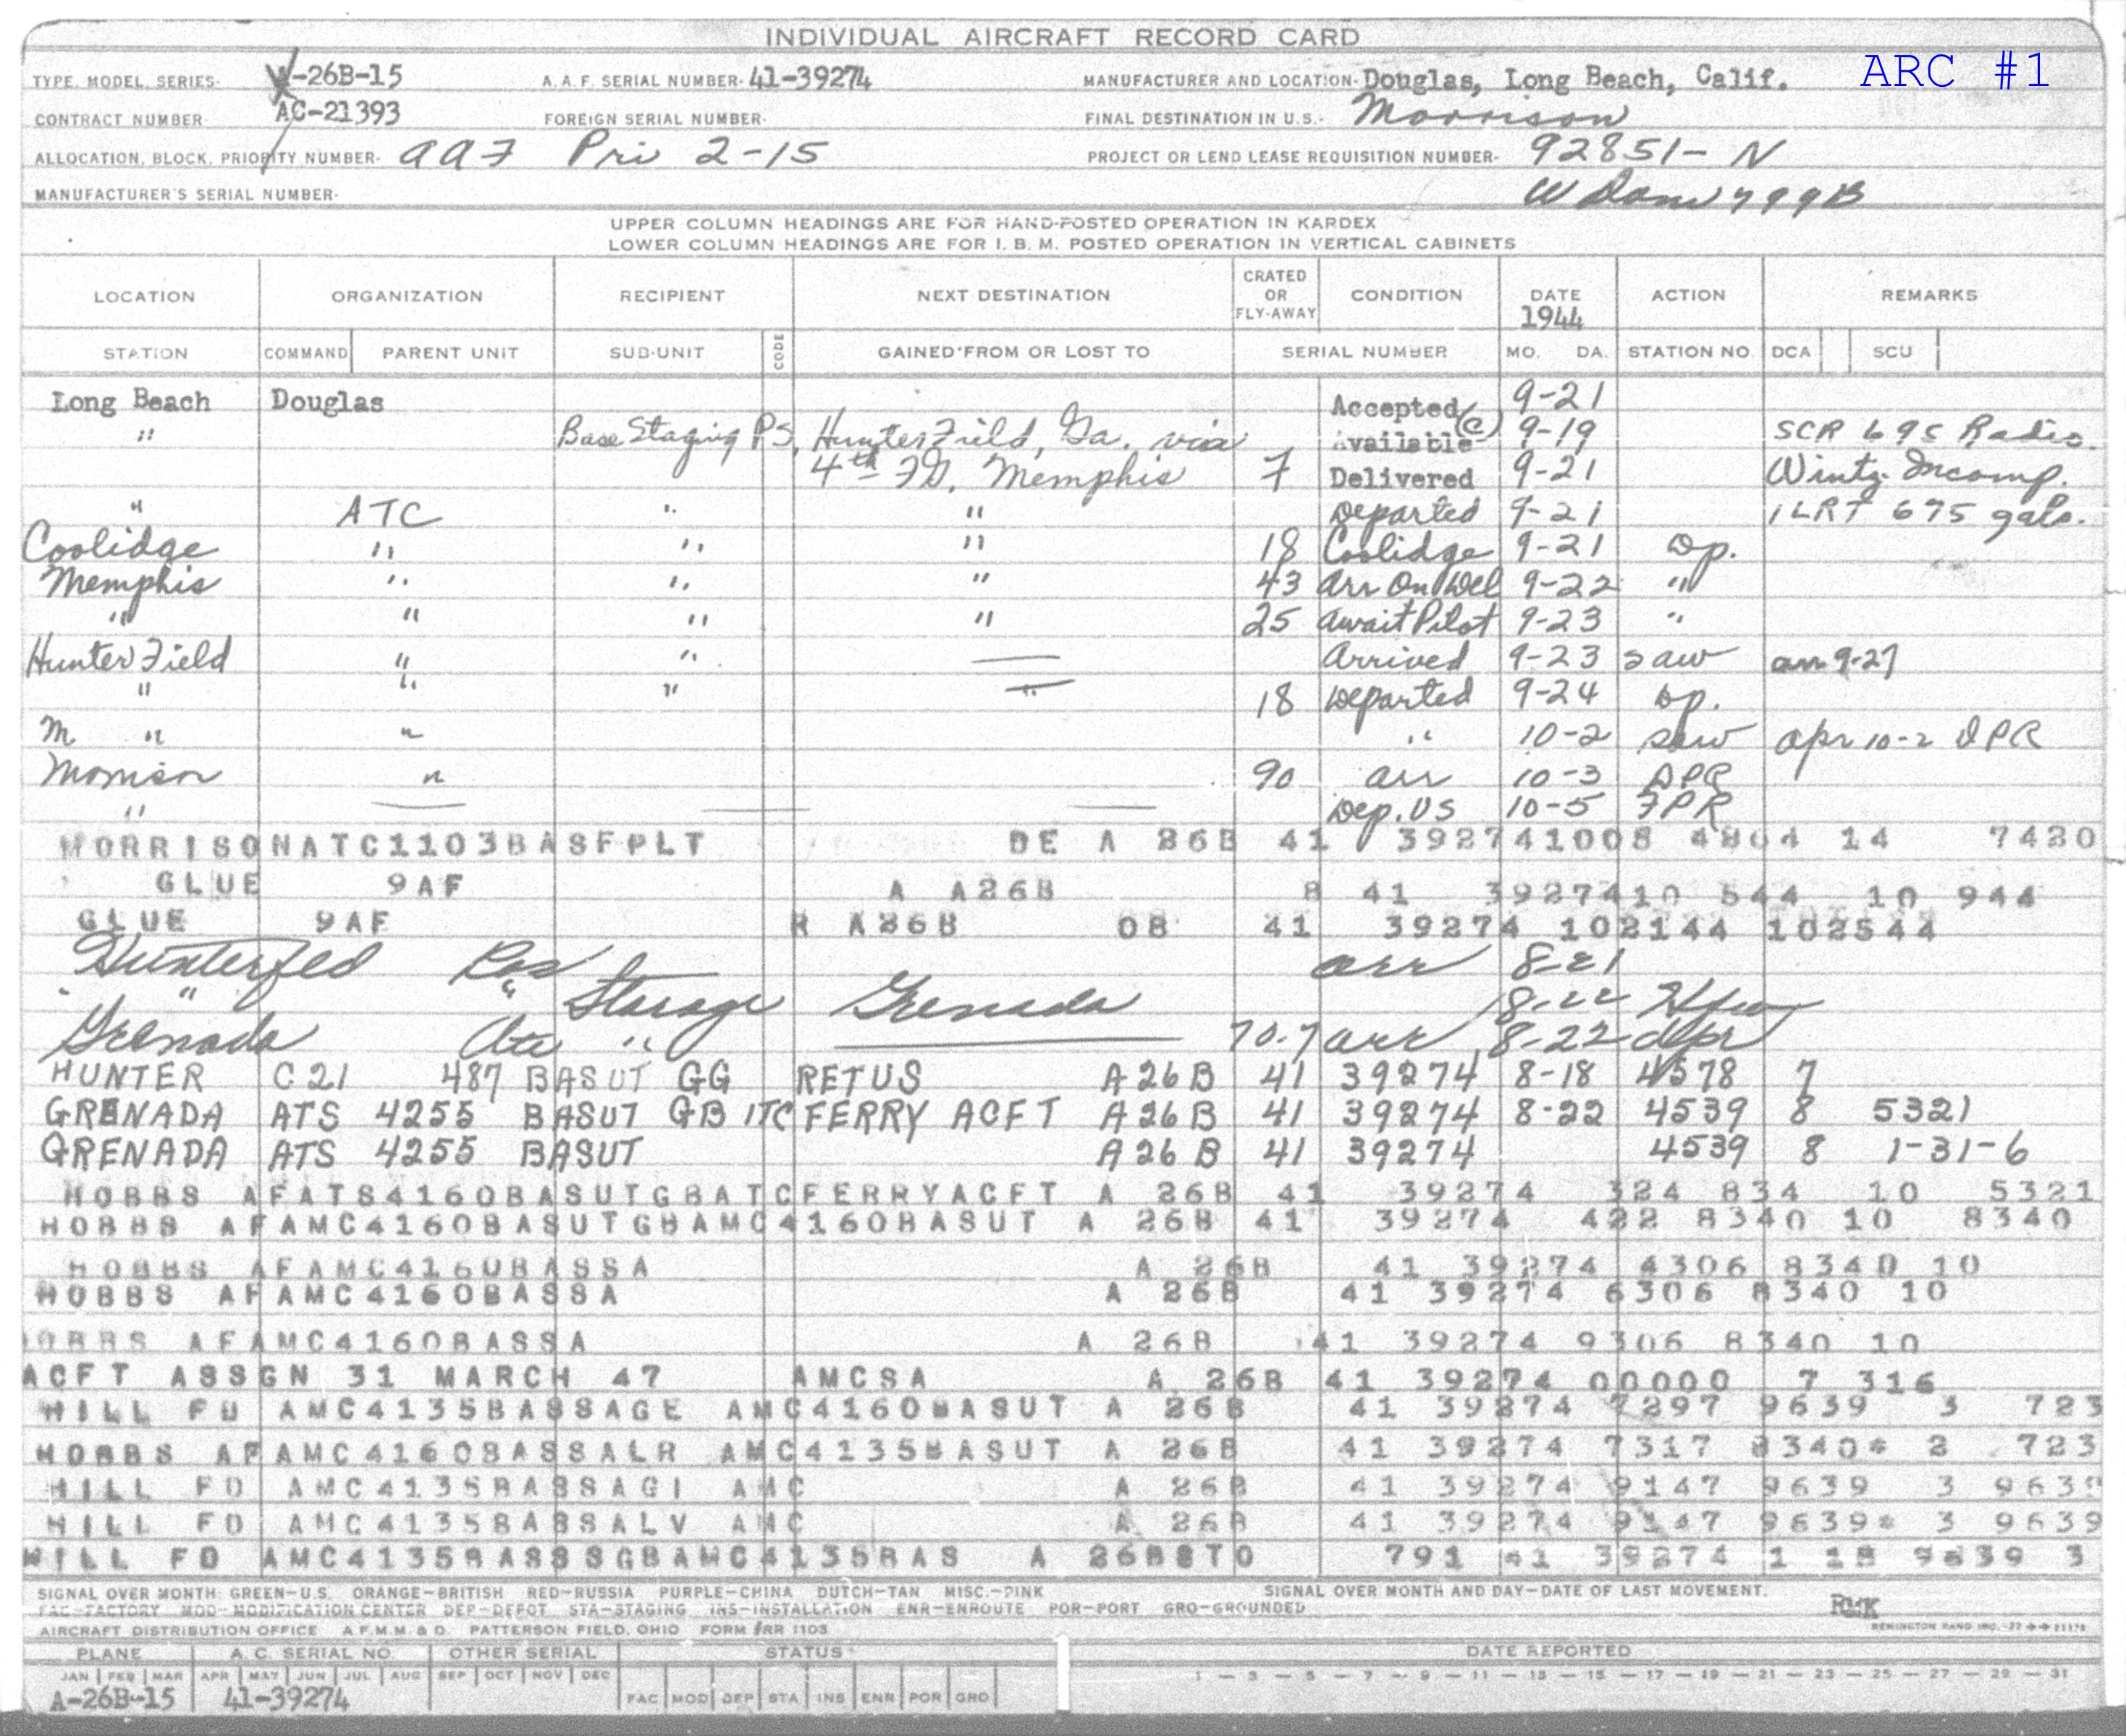 INDIVIDUAL AIRCRAFT RECORD CARD
ARC #1
TYPE, MODEL, SERIES- -26B-15 A.A.F. SERIAL NUMBER- 41-39274 MANUFACTURER AND LOCATION- Douglas, Long Beach, Calif.
CONTRACT NUMBER AC-21393 FOREIGN SERIAL NUMBER- FINAL DESTINATION IN U.S.- Morrison
ALLOCATION, BLOCK, PRIORITY NUMBER- AAF Pri 2-15 PROJECT OR LEND LEASE REQUISITION NUMBER- 92851-N
MANUFACTURER'S SERIAL NUMBER-
UPPER COLUMN HEADINGS ARE FOR HAND-POSTED OPERATION IN KARDEX
LOWER COLUMN HEADINGS ARE FOR I. B. M. POSTED OPERATION IN VERTICAL CABINETS
LOCATION ORGANIZATION RECIPIENT NEXT DESTINATION CRATED OR FLY-AWAY CONDITION DATE 1944 ACTION REMARKS
STATION COMMAND PARENT UNIT SUB-UNIT CODE GAINED FROM OR LOST TO SERIAL NUMBER MO. DA. STATION NO. DCA SCU
Long Beach Douglas Accepted 9-21
" Base Staging PS, Hunter Field, Ga. via Available (C) 9-19 SCR 695 Radio.
4th FG, Memphis 7 Delivered 9-21 Wintz. Incomp.
" ATC " " Departed 9-21 1LRT 675 gals.
Coolidge " " " 18 Coolidge 9-21 Op.
Memphis " " " 43 Arr On Del 9-22 "
" " " " 25 Await Pilot 9-23 "
Hunter Field " " — Arrived 9-23 saw arr 9-27
" " " — 18 Departed 9-24 Op.
M " " " 10-2 saw apr 10-2 DPR
Morrison " 90 arr 10-3 DPR
" — — — Dep. US 10-5 FPR
MORRISONATC1103BASFPLT DE A 26B 41 392741008 4804 14 7420
GLUE 9AF A A26B B 41 3927410 544 10 944
GLUE 9AF R A26B 0B 41 39274 102144 102544
Hunterfed arr 8-21
" " Storage Grenada 8-22
Grenada " — 70.7 arr 8-22 dpr
HUNTER C21 487 BASUT GG RETUS A26B 41 39274 8-18 4578 7
GRENADA ATS 4255 BASUT GB ITC FERRY ACFT A26B 41 39274 8-22 4539 8 5321
GRENADA ATS 4255 BASUT A26B 41 39274 4539 8 1-31-6
HOBBS AFATS4160BASUTGBATCFERRYACFT A 26B 41 39274 324 834 10 5321
HOBBS AFAMC4160BASUTGBAMC4160BASUT A 26B 41 39274 422 8340 10 8340
HOBBS AFAMC4160BASSA A 26B 41 39274 4306 8340 10
HOBBS AFAMC4160BASSA A 26B 41 39274 6306 8340 10
HOBBS AFAMC4160BASSA A 26B 41 39274 9306 8340 10
ACFT ASSGN 31 MARCH 47 AMCSA A 26B 41 39274 00000 7 316
HILL FD AMC4135BASSAGE AMC4160BASUT A 26B 41 39274 7297 9639 3 723
HOBBS AFAMC4160BASSALR AMC4135BASUT A 26B 41 39274 7317 8340* 2 723
HILL FD AMC4135BASSAGI AMC A 26B 41 39274 9147 9639 3 9639
HILL FD AMC4135BASSALV AMC A 26B 41 39274 9147 9639* 3 9639
HILL FD AMC4135BASSSGBAMC4135BAS A 26BSTO 791 41 39274 1 18 9639 3
SIGNAL OVER MONTH: GREEN-U.S. ORANGE-BRITISH RED-RUSSIA PURPLE-CHINA DUTCH-TAN MISC.-PINK SIGNAL OVER MONTH AND DAY-DATE OF LAST MOVEMENT.
FAC-FACTORY MOD-MODIFICATION CENTER DEP-DEPOT STA-STAGING INS-INSTALLATION ENR-ENROUTE POR-PORT GRO-GROUNDED
AIRCRAFT DISTRIBUTION OFFICE A.F.M.M. & D. PATTERSON FIELD, OHIO FORM #RR 1103
PLANE A.C. SERIAL NO. OTHER SERIAL STATUS DATE REPORTED
JAN FEB MAR APR MAY JUN JUL AUG SEP OCT NOV DEC 1 — 3 — 5 — 7 — 9 — 11 — 13 — 15 — 17 — 19 — 21 — 23 — 25 — 27 — 29 — 31
A-26B-15 41-39274 FAC MOD DEP STA INS ENR POR GRO